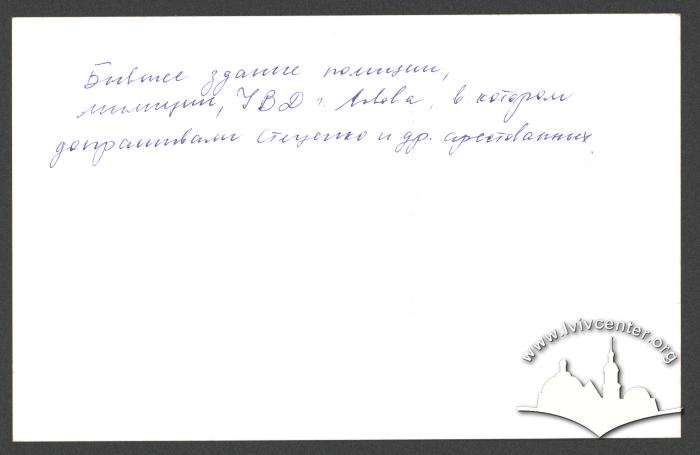 Бывшее здание полиции,
милиции, УВД г. Львова, в котором
допрашивали Стеценко и др. арестованных.
www.lvivcenter.org